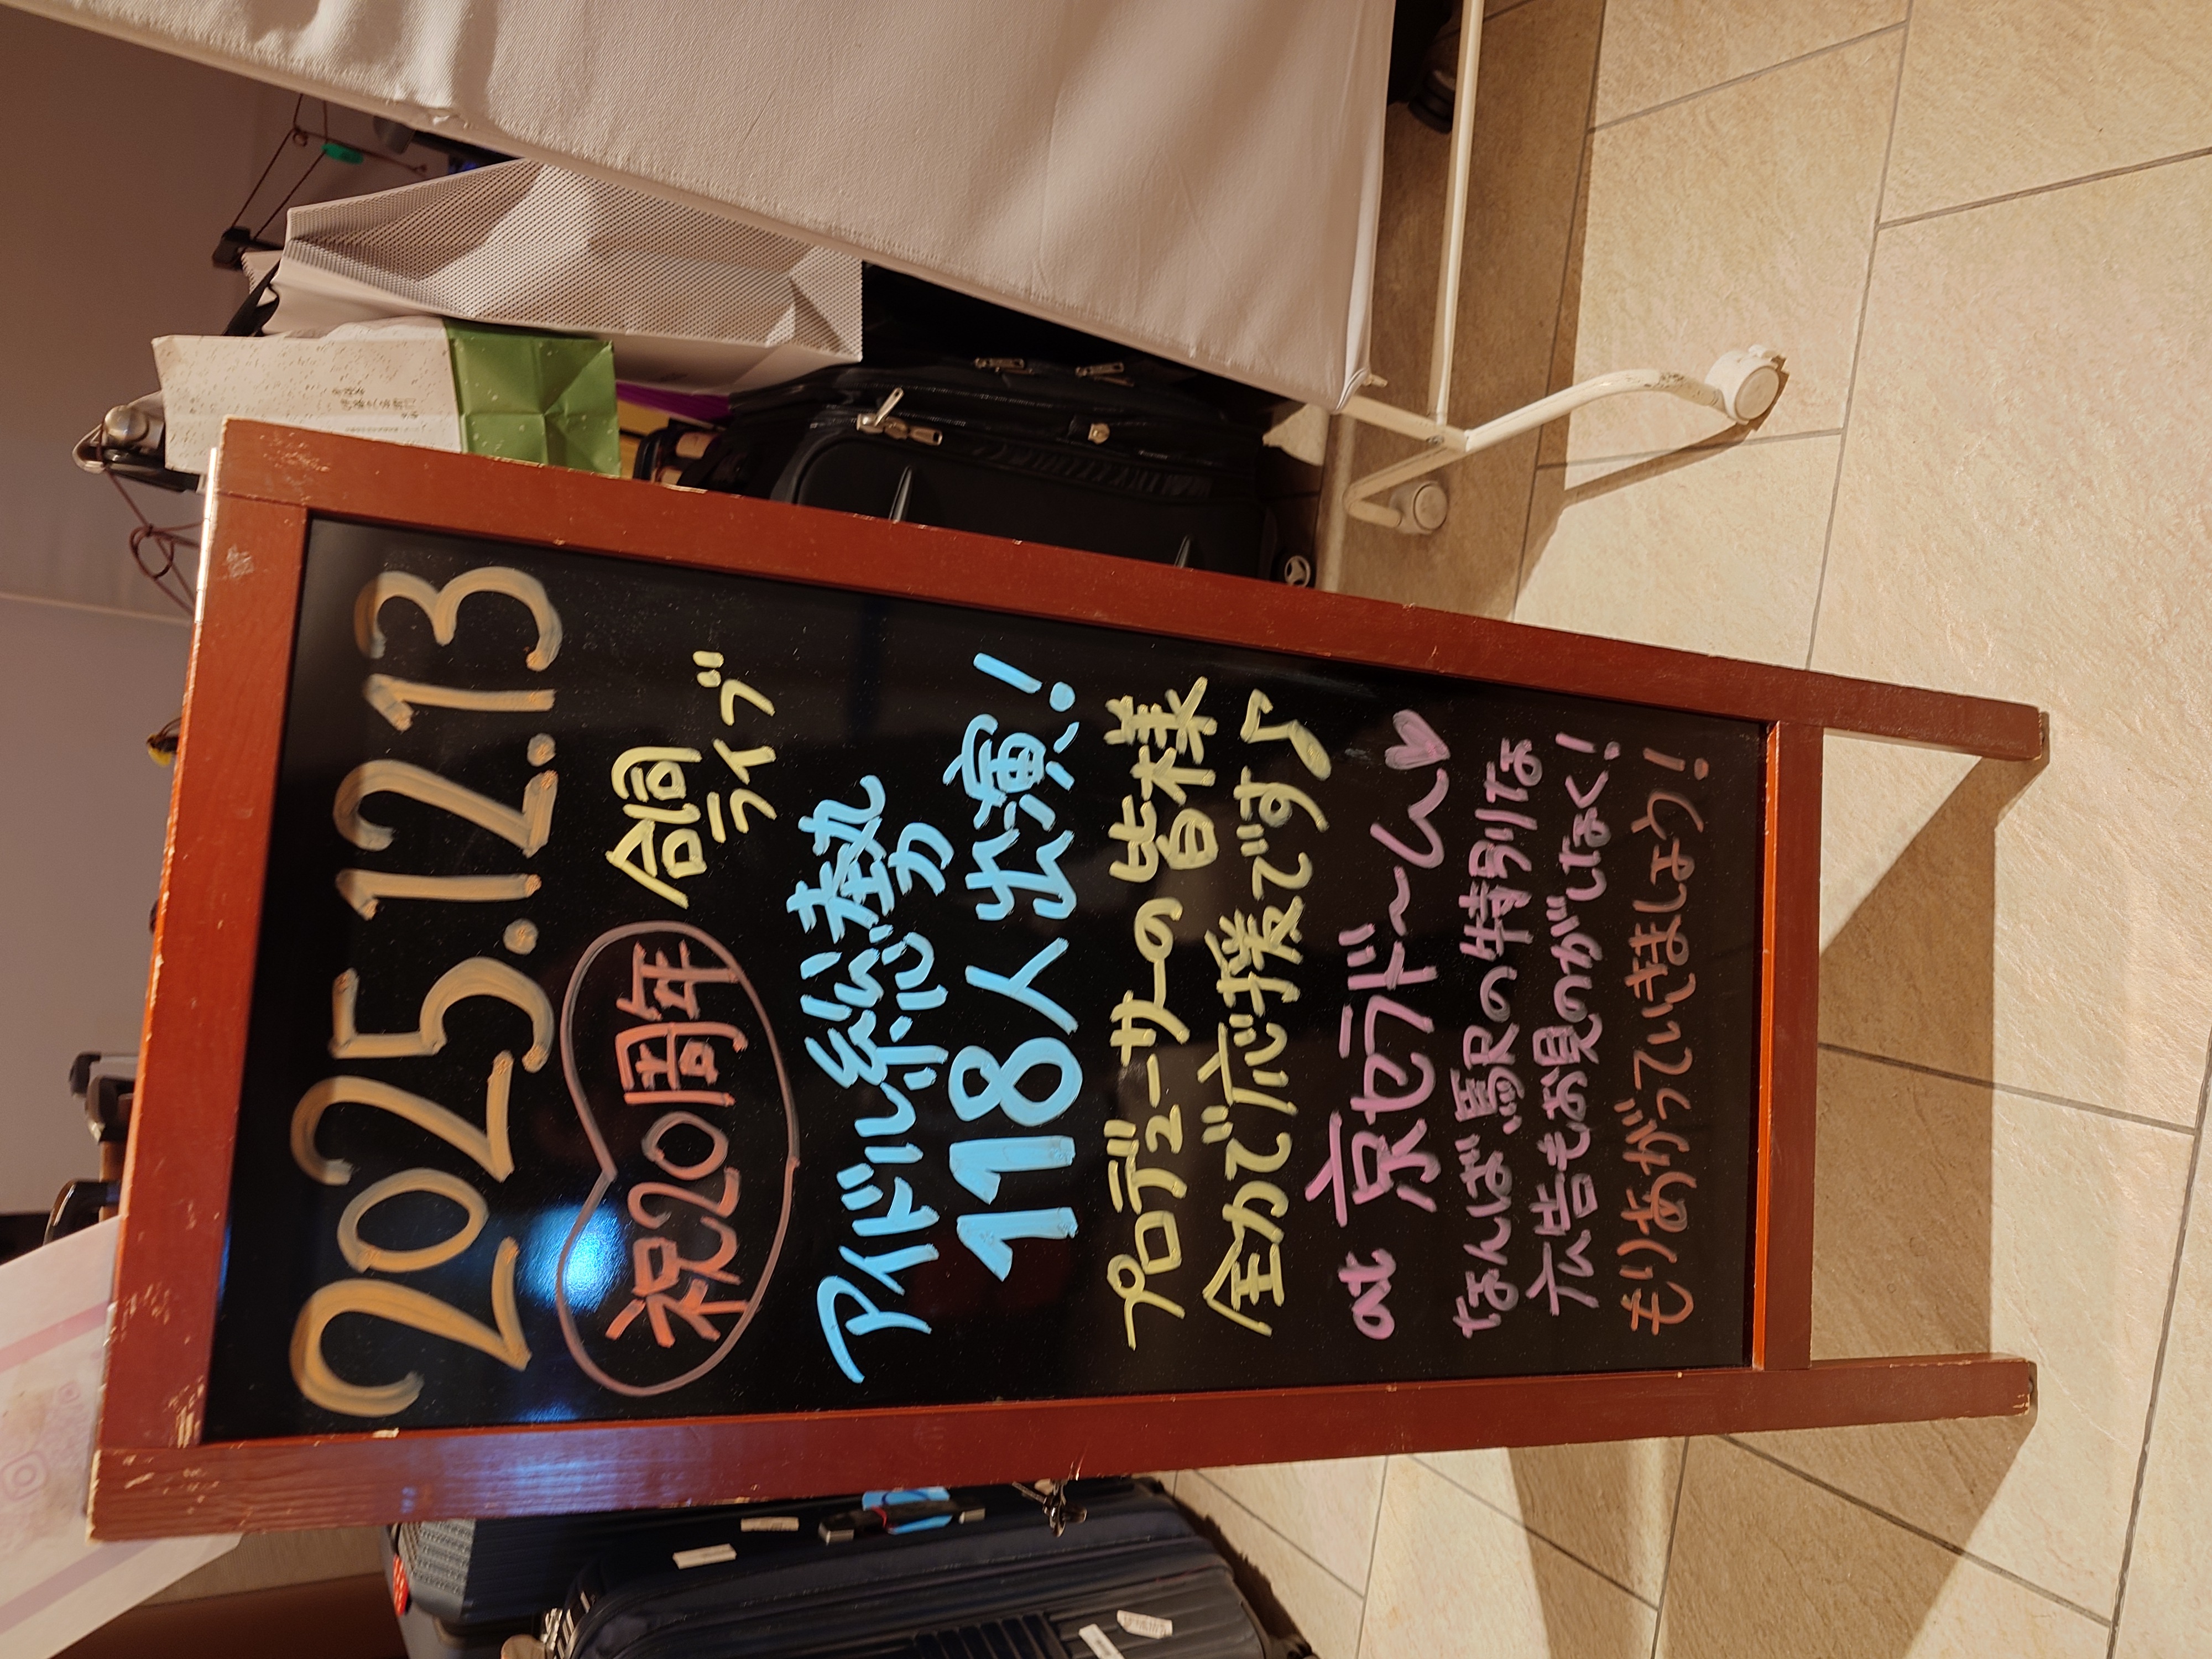 2025.12.13
祝20周年 合同ライブ
アイドル総勢力
118人出演！
プロデューサーの皆様
全力で応援です♪
at 京セラドーム♡
なんば駅の特別な
広告もお見のがしなく！
もりあがっていきましょう！